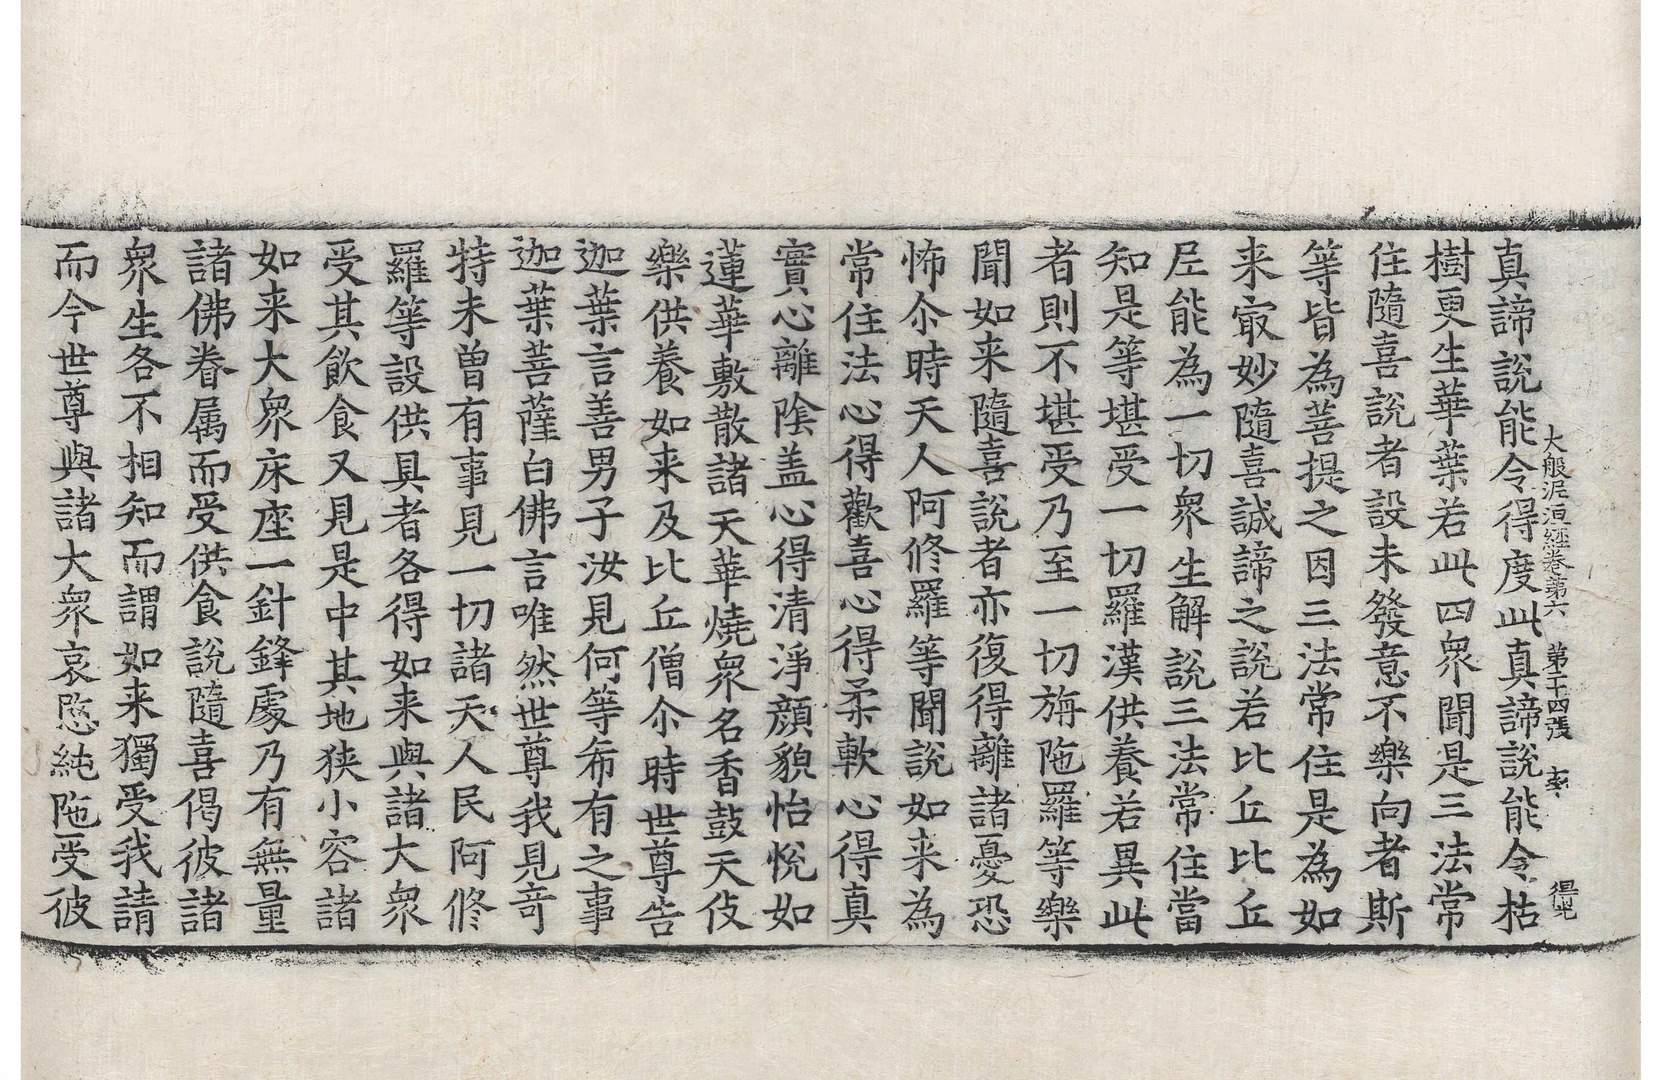 大般泥洹經卷第六　第十四張
真諦說能令得度此真諦說能令枯
樹更生華葉若此四眾聞是三法常
住隨喜說者設未發意不樂向者斯
等皆為菩提之因三法常住是為如
来㝡妙隨喜誠諦之說若比丘比丘
尼能為一切眾生解說三法常住當
知是等堪受一切羅漢供養若異此
者則不堪受乃至一切旃陁羅等樂
聞如来隨喜說者亦復得離諸憂恐
怖尒時天人阿修羅等聞說如来為
常住法心得歡喜心得柔軟心得真
實心離陰盖心得清淨顏貌怡悅如
蓮華敷散諸天華燒眾名香鼓天伎
樂供養如来及比丘僧尒時世尊告
迦葉言善男子汝見何等希有之事
迦葉菩薩白佛言唯然世尊我見奇
特未曾有事見一切諸天人民阿修
羅等設供具者各得如来與諸大眾
受其飲食又見是中其地狹小容諸
如来大眾床座一針鋒處乃有無量
諸佛眷属而受供食說隨喜偈彼諸
眾生各不相知而謂如来獨受我請
而今世尊與諸大眾哀愍純陁受彼